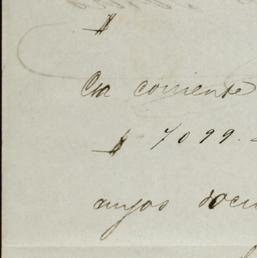 $
Cta corriente
$ 7099.
cuyos docu